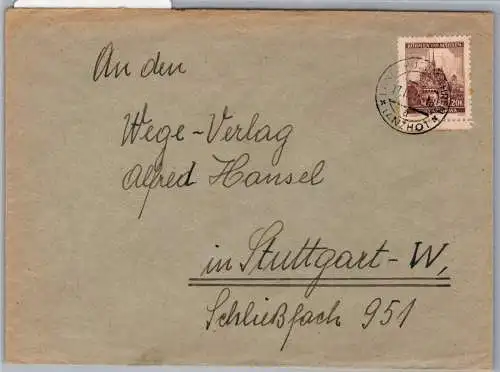 BÖHMEN UND MÄHREN
LANZHOT
An den
Wege-Verlag
Alfred Hansel
in Stuttgart-W,
Schließfach 951